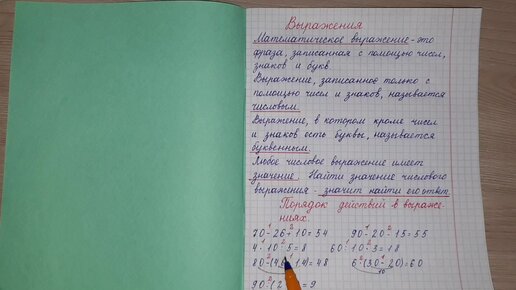 Выражения
Математическое выражение - это
фраза, записанная с помощью чисел,
знаков и букв.
Выражение, записанное только с
помощью чисел и знаков, называется
числовым.
Выражение, в котором кроме чисел
и знаков есть буквы, называется
буквенным.
Любое числовое выражение имеет
значение. Найти значение числового
выражения - значит найти его ответ.
Порядок действий в выраже-
ниях.
70-26+10=54 90-20-15=55
4·10:5=8 60:10·3=18
80-(4,8 =48 6·(30-20)=60
10
90:(2 =9